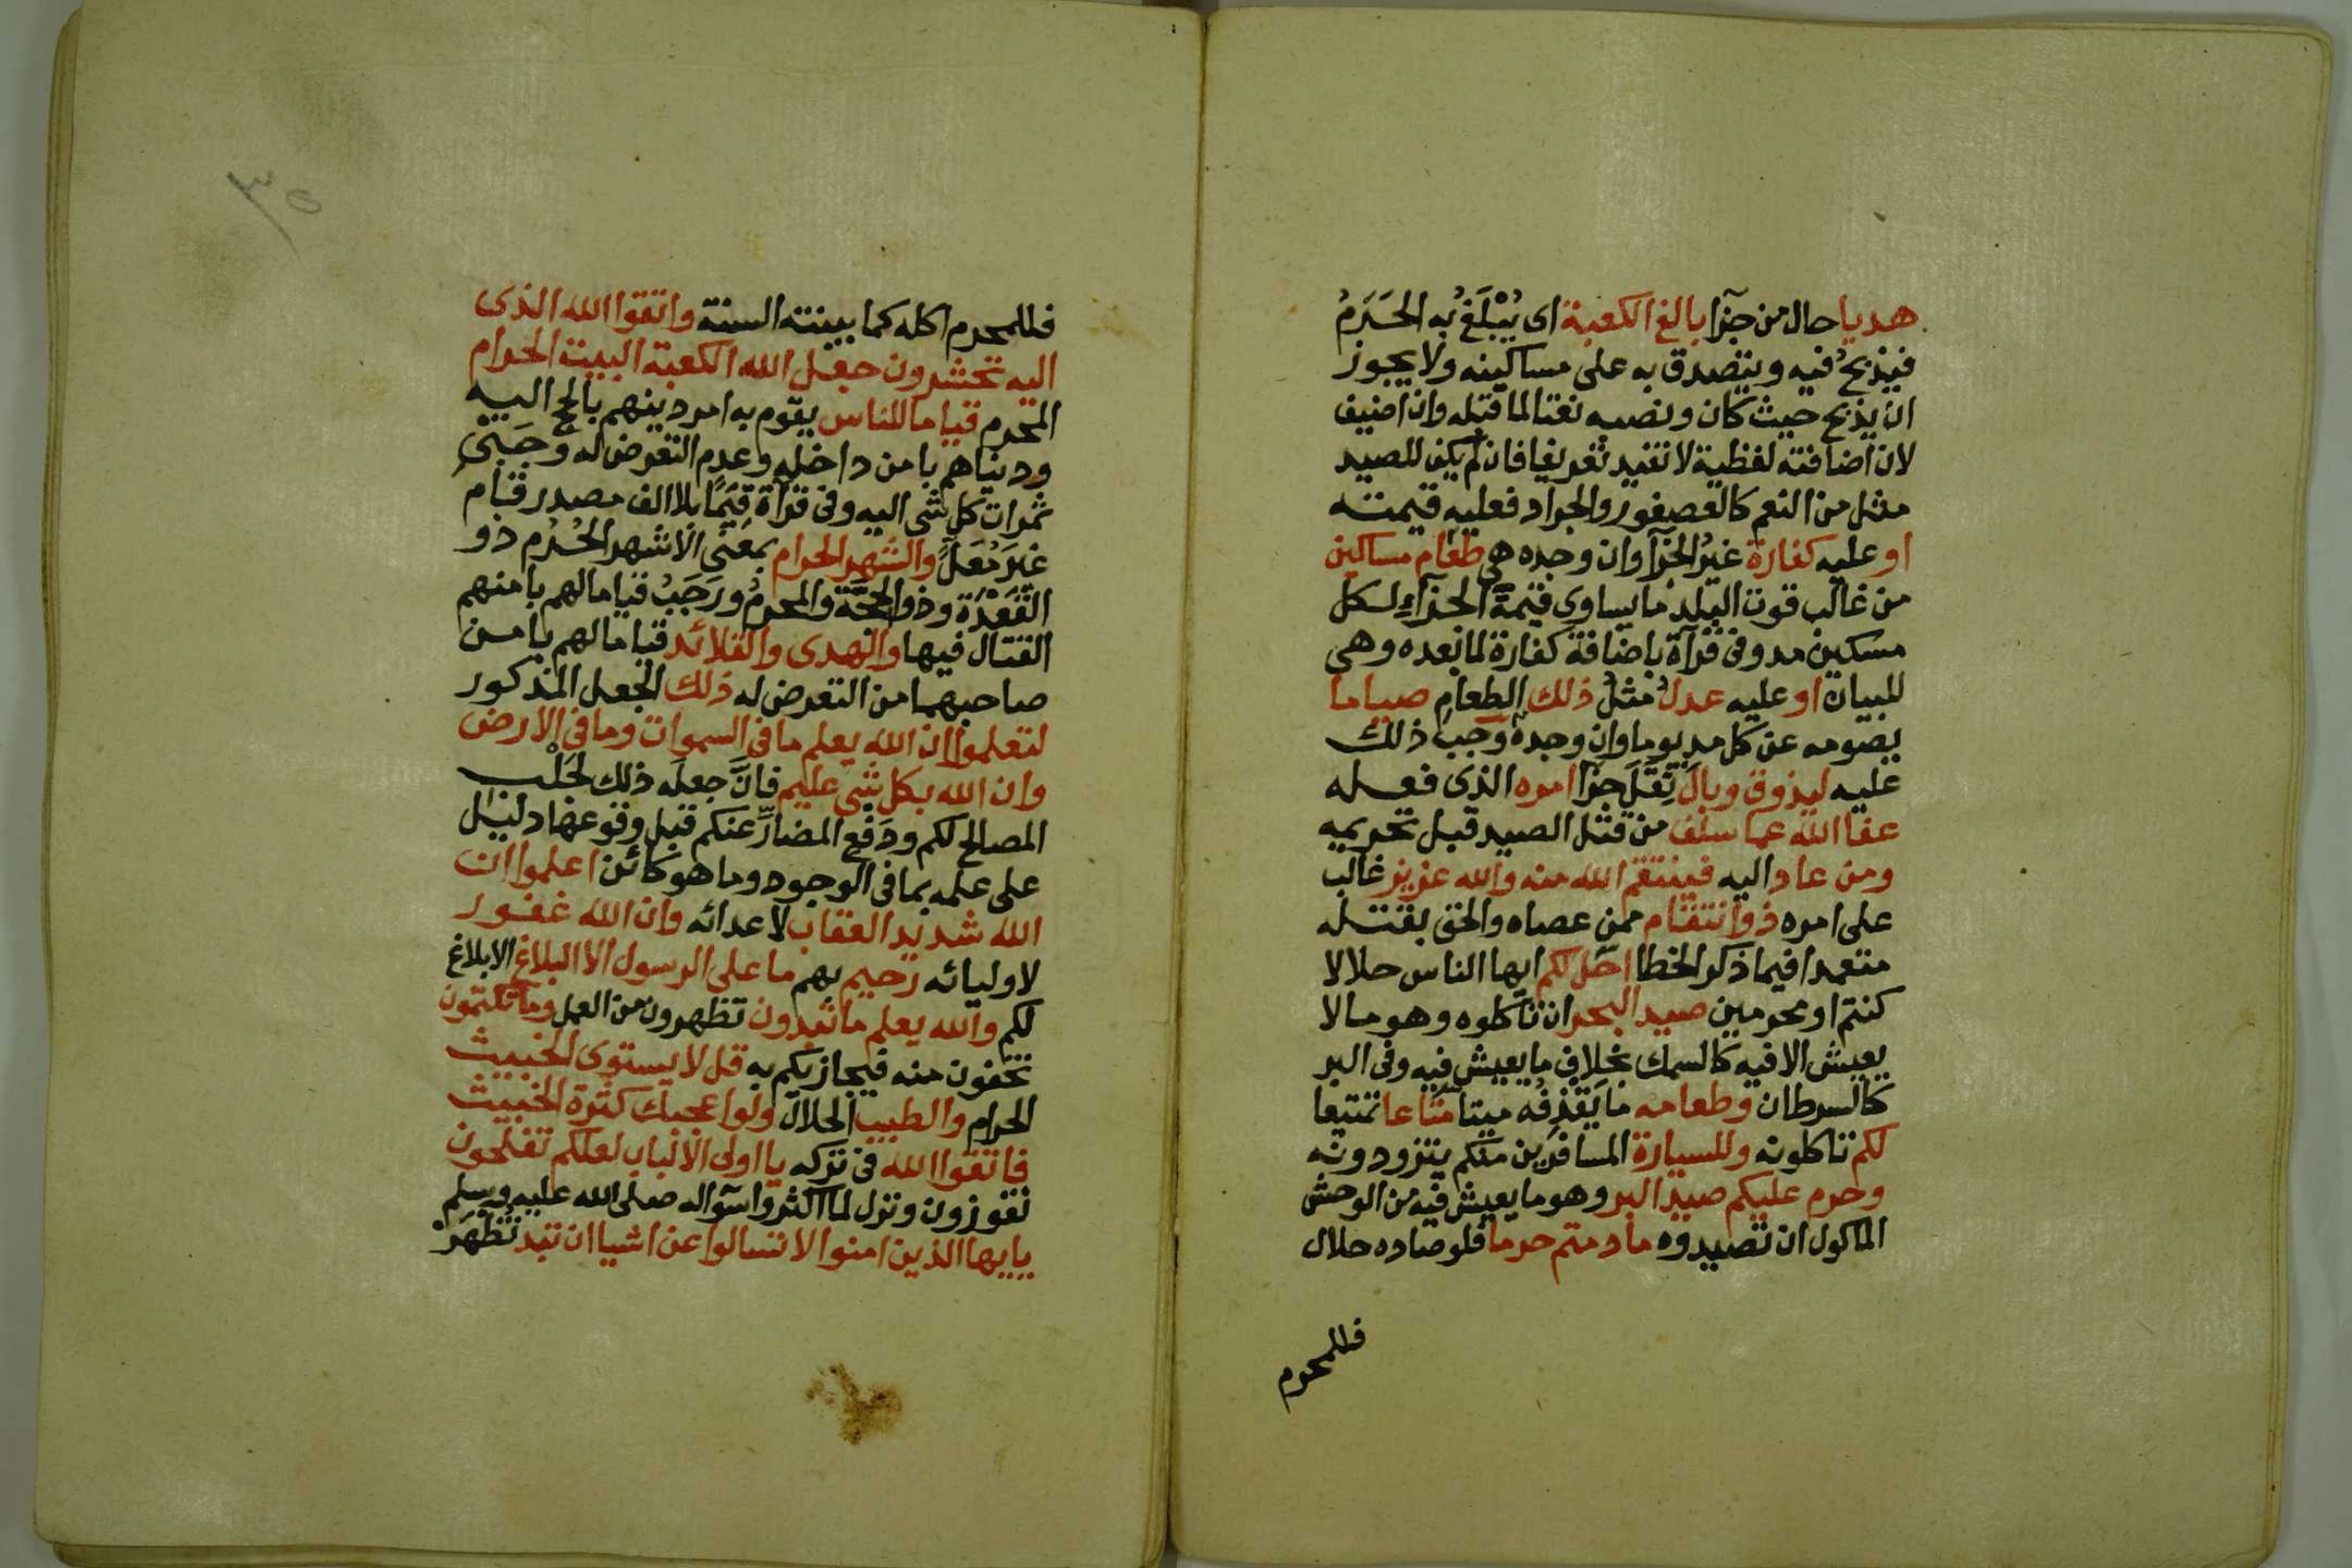 هديا حال من جزآ بالغ الكعبة اى يُبْلَغُ به الحَرَمُ
فيذبحُ فيه ويتصدق به على مساكينه ولا يجوز
ان يذبح حيث كان ونصبه نعتا لما قبله وان اضيف
لان اضافته لفظية لا تفيد تعريفا فان لم يكن للصيد
مثل من النعم كالعصفور والجراد فعليه قيمته
او عليه كفارة غيرُ الجزآ وان وجده هى طعام مساكين
من غالب قوت البلد ما يساوى قيمة الجزآءِ لكل
مسكين مد وفى قرآة باضافة كفارة لما بعده وهى
للبيان او عليه عدل مثلُ ذلك الطعام صياما
يصومه عن كل مد يوما وان وجده وَجَبَ ذلك
عليه ليذوق وبالَ ثِقَلَ جزآ امره الذى فعله
عفا الله عما سلف من قتل الصيد قبل تحريمه
ومن عاد اليه فينتقم الله منه والله عزيز غالب
على امره ذو انتقام ممن عصاه والحق بقتله
متعمدا فيما ذكر الخطا احل لكم ايها الناس حلالا
كنتم او محرمين صيد البحر ان تاكلوه وهو ما لا
يعيش الا فيه كالسمك بخلاف ما يعيش فيه وفى البر
كالسرطان وطعامه ما يَقْذِفُه ميتا متاعا تمتيعا
لكم تاكلونه وللسيارة المسافرين منكم يتزودونه
وحرم عليكم صيد البر وهو ما يعيش فيه من الوحش
الماكول ان تصيدوه ما دمتم حرما فلو صاده حلال
فللمحرم
٣٥
فللمحرم اكله كما بينته السنة واتقوا الله الذى
اليه تحشرون جعل الله الكعبة البيت الحرام
المحرم قياما للناس يقوم به امر دينهم بالحج اليه
ودنياهم بامن داخله وعدم التعرض له وجَبْىِ
ثمرات كل شى اليه وفى قرآة قِيَمًا بلا الف مصدر قام
غيرَ مُعَلٍّ والشهر الحرام بمعنى الاشهر الحُرُم ذو
القَعْدَة وذو الحجَّة والمحرمُ ورَجَبُ قياما لهم بامنهم
القتال فيها والهدى والقلائد قياما لهم بامن
صاحبهما من التعرض له ذلك الجعل المذكور
لتعلموا ان الله يعلم ما فى السموات وما فى الارض
وان الله بكل شى عليم فانَّ جعله ذلك لجَلْب
المصالح لكم ودَفْع المضارِّ عنكم قبل وقوعها دليل
على علمه بما فى الوجود وما هو كائن اعلموا ان
الله شديد العقاب لاعدائه وان الله غفور
لاوليائه رحيم بهم ما على الرسول الا البلاغ الابلاغ
لكم والله يعلم ما تبدون تظهرون من العمل وما تكتمون
تخفون منه فيجازيكم به قل لا يستوى الخبيث
الحرام والطيب الحلال ولو اعجبك كثرة الخبيث
فاتقوا الله فى تركه يا اولى الالباب لعلكم تفلحون
تفوزون ونزل لما اكثروا سؤاله صلى الله عليه وسلم
يايها الذين امنوا لا تسالوا عن اشيا ان تبد تُظْهَرْ